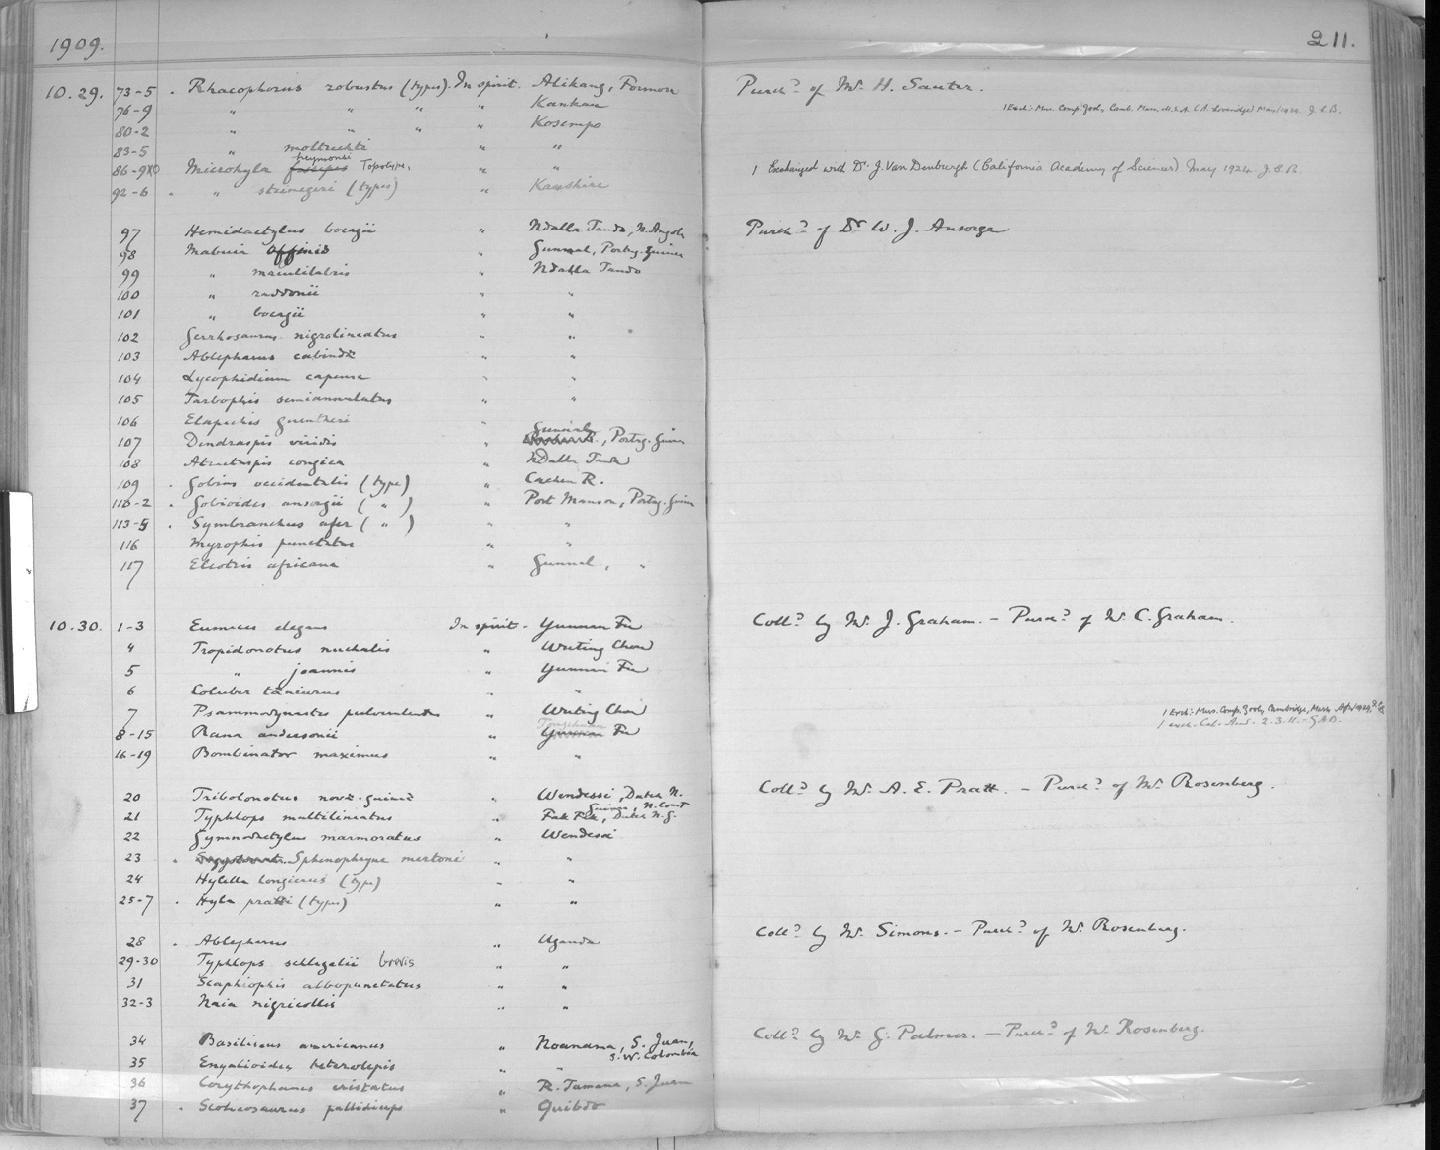 1909.
211.
10.29. 73-5 . Rhacophorus robustus (types). In spirit. Alikang, Formosa Purchd of Mr H. Sauter.
76-9 " " " " Kankau
1 Exch: Mus. Comp. Zool., Camb. Mass. U.S.A. (A. Loveridge) May 1924 J.C.B.
80-2 " " " " Kosempo
83-5 " moltrechti " "
heymonsi
86-90 Microhyla fissipes Topotype. " " 1 Exchanged with Dr J. Van Denburgh (California Academy of Sciences) May 1924. J.C.B.
92-6 . " steinegeri (types) " Kanshire
97 Hemidactylus bocagii " Ndalla Tando, N. Angola Purchd of Dr W. J. Ansorge
98 Mabuia affinis " Gunnal, Portug. Guinea
99 " maculilabris " Ndalla Tando
100 " raddonii " "
101 " bocagii " "
102 Gerrhosaurus nigrolineatus " "
103 Ablepharus cabindæ " "
104 Lycophidium capense " "
105 Tarbophis semiannulatus " "
106 Elapechis guentheri "
107 Dendraspis viridis " Gunnal, Portug. Guinea
108 Atractaspis congica " Ndalla Tando
109 . Gobius occidentalis (type) " Cacheu R.
110-2 . Gobioides ansorgii ( " ) " Port Mansoa, Portug. Guinea
113-5 . Symbranchus afer ( " ) " "
116 Myrophis punctatus " "
117 Eleotris africana " Gunnal, "
10.30. 1-3 Eumeces elegans In spirit. Yunnan Fu Colld by Mr J. Graham. - Purchd of Mr C. Graham.
4 Tropidonotus nuchalis " Writing Chou
5 " joannis " Yunnan Fu
6 Coluber tæniurus " "
7 Psammodynastes pulverulentus " Writing Chou
1 Exch: Mus. Comp. Zool., Cambridge, Mass. Apr 1924, J.C.B.
1 exch. Cal. Aus. 2.3.11. - G.A.B.
8-15 Rana andersonii " Tongchuan Yunnan Fu
16-19 Bombinator maximus " "
20 Tribolonotus novæ-guineæ " Wendessi, Dutch N. Guinea, N. Coast Colld by Mr A. E. Pratt. - Purchd of Mr Rosenberg.
21 Typhlops multilineatus " Fak Fak, Dutch N.G.
22 Gymnodactylus marmoratus " Wendessi
23 . Sphenophryne mertoni " "
24 Hylella longicrus (type) " "
25-7 . Hyla pratti (types) " "
28 . Ablepharus " Uganda Colld by Mr Simons. - Purchd of Mr Rosenberg.
29-30 Typhlops schlegelii brevis " "
31 Scaphiophis albopunctatus " "
32-3 Naia nigricollis " "
34 Basiliscus americanus " Noanama, S. Juan, S.W. Colombia Colld by Mr G. Palmer. - Purchd of Mr Rosenberg.
35 Enyalioides heterolepis " "
36 Corythophanes cristatus " R. Tamana, S. Juan
37 . Scolecosaurus pallidiceps " Quibdo